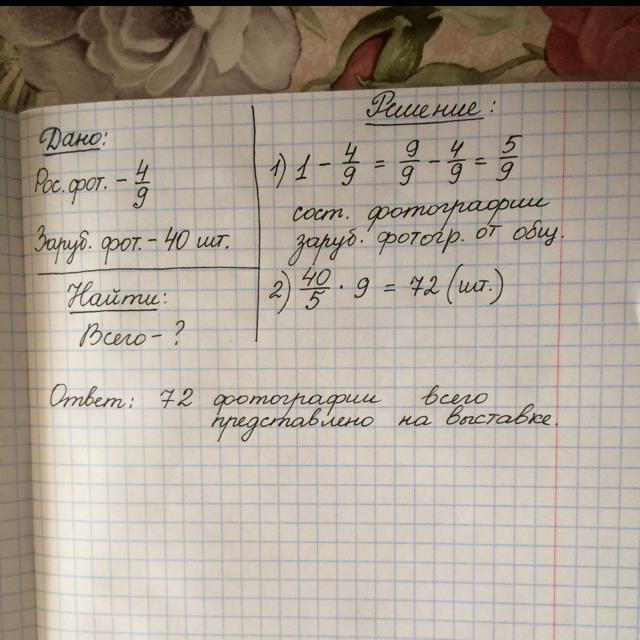 Дано:
Рос. фот. - 4/9
Заруб. фот. - 40 шт.
Найти:
Всего - ?
Решение:
1) 1 - 4/9 = 9/9 - 4/9 = 5/9
сост. фотографии
заруб. фотогр. от общ.
2) 40/5 · 9 = 72 (шт.)
Ответ: 72 фотографии всего
представлено на выставке.